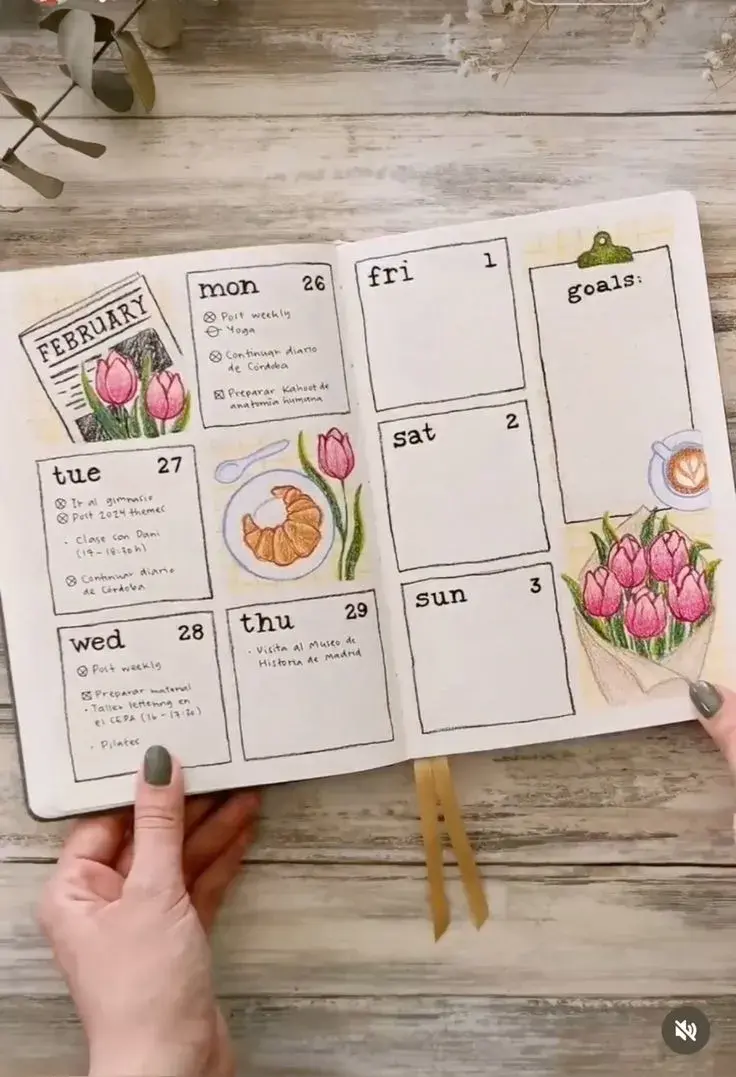 FEBRUARY
mon 26
Post weekly
Yoga
Continuar diario
de Córdoba
Preparar Kahoot de
anatomía humana
tue 27
Ir al gimnasio
Post 2024 themes
· Clase con Dani
(17-18:30h)
Continuar diario
de Córdoba
wed 28
Post weekly
Preparar material
· Taller lettering en
el CEPA (16-17:30)
· Pilates
thu 29
· Visita al Museo de
Historia de Madrid
fri 1
sat 2
sun 3
goals: